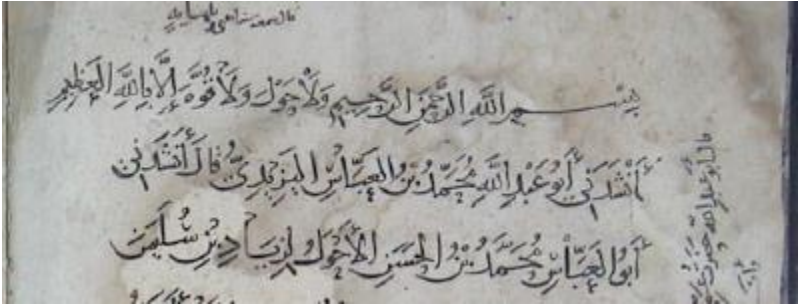 بسم الله الرحمن الرحيم ولا حول ولا قوة إلا بالله العظيم
أنشدني أبو عبد الله محمد بن العباس اليزيدي قال أنشدني
أبو العباس محمد بن الحسن الأحول لزياد بن سليمن
قال أبو عبد الله